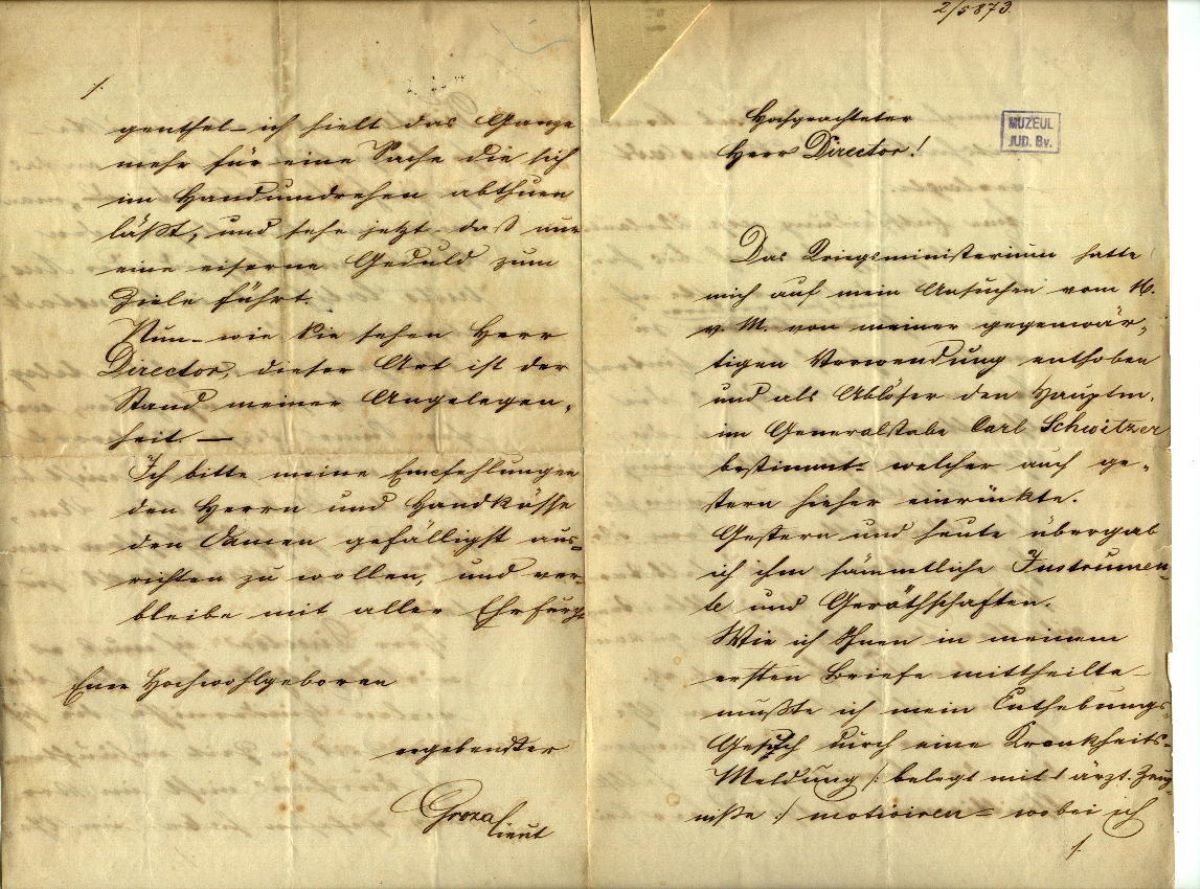 2/5873.
Hochgeachteter
Herr Director!
MUZEUL
JUD. Bv.
Das Kriegsministerium hatte
mich auf mein Ansuchen vom 16.
v. M. von meiner gegenwär-
tigen Verwendung enthoben
und als Ablöser den Hauptm.
im Generalstabe Carl Schwitzer
bestimmt= welcher auch ge-
stern hieher einrückte.
Gestern und heute übergab
ich ihm sämmtliche Instrumen-
te und Geräthschaften.
Wie ich Ihnen in meinem
ersten Briefe mittheilte_
mußte ich mein Enthebungs-
Gesuch durch eine Krankheits-
Meldung /: belegt mit 1 ärzt. Zeug-
niße :/ motiviren= wobei ich
/.
/.
ich hielt das Ganze
mehr für eine Sache die sich
im Handumdrehen abthuen
läßt, und sehe jetzt daß nur
eine eiserne Geduld zum
Ziele führt.
Nun_ wie Sie sehen Herr
Director, dieser Art ist der
Stand meiner Angelegen-
heit._
Ich bitte meine Empfehlungen
den Herrn und Handküsse
den Damen gefälligst aus=
richten zu wollen, und ver-
bleibe mit aller Ehrfurcht
Euer Hochwohlgeboren
ergebenster
Groza
Lieut